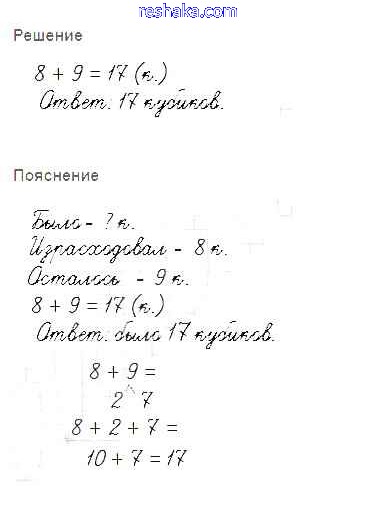 reshaka.com
Решение
8 + 9 = 17 (к.)
Ответ: 17 кубиков.
Пояснение
Было - ? к.
Израсходовал - 8 к.
Осталось - 9 к.
8 + 9 = 17 (к.)
Ответ: было 17 кубиков.
8 + 9 =
2 7
8 + 2 + 7 =
10 + 7 = 17